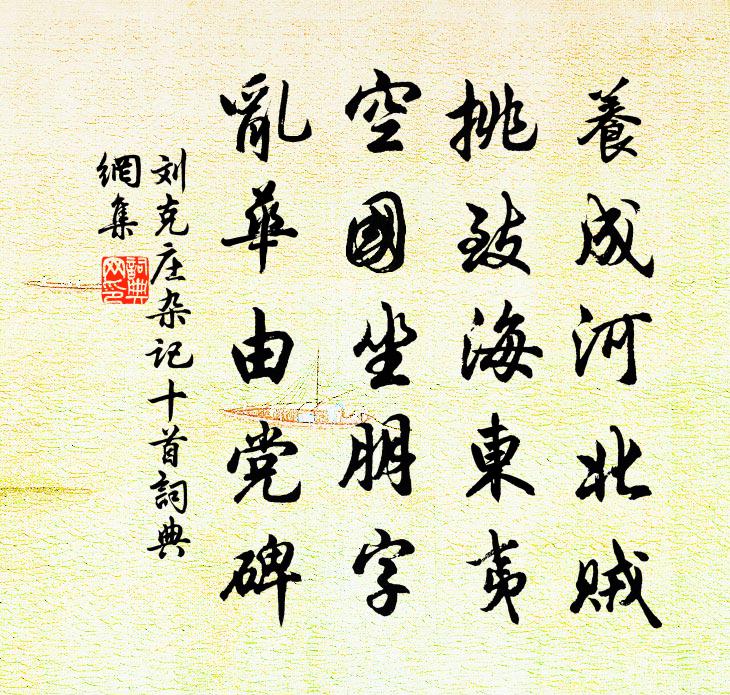 養成河北賊
挑致海東夷
空國坐朋字
亂華由党碑
刘克庄杂记十首詞典
網集
詞典
网印